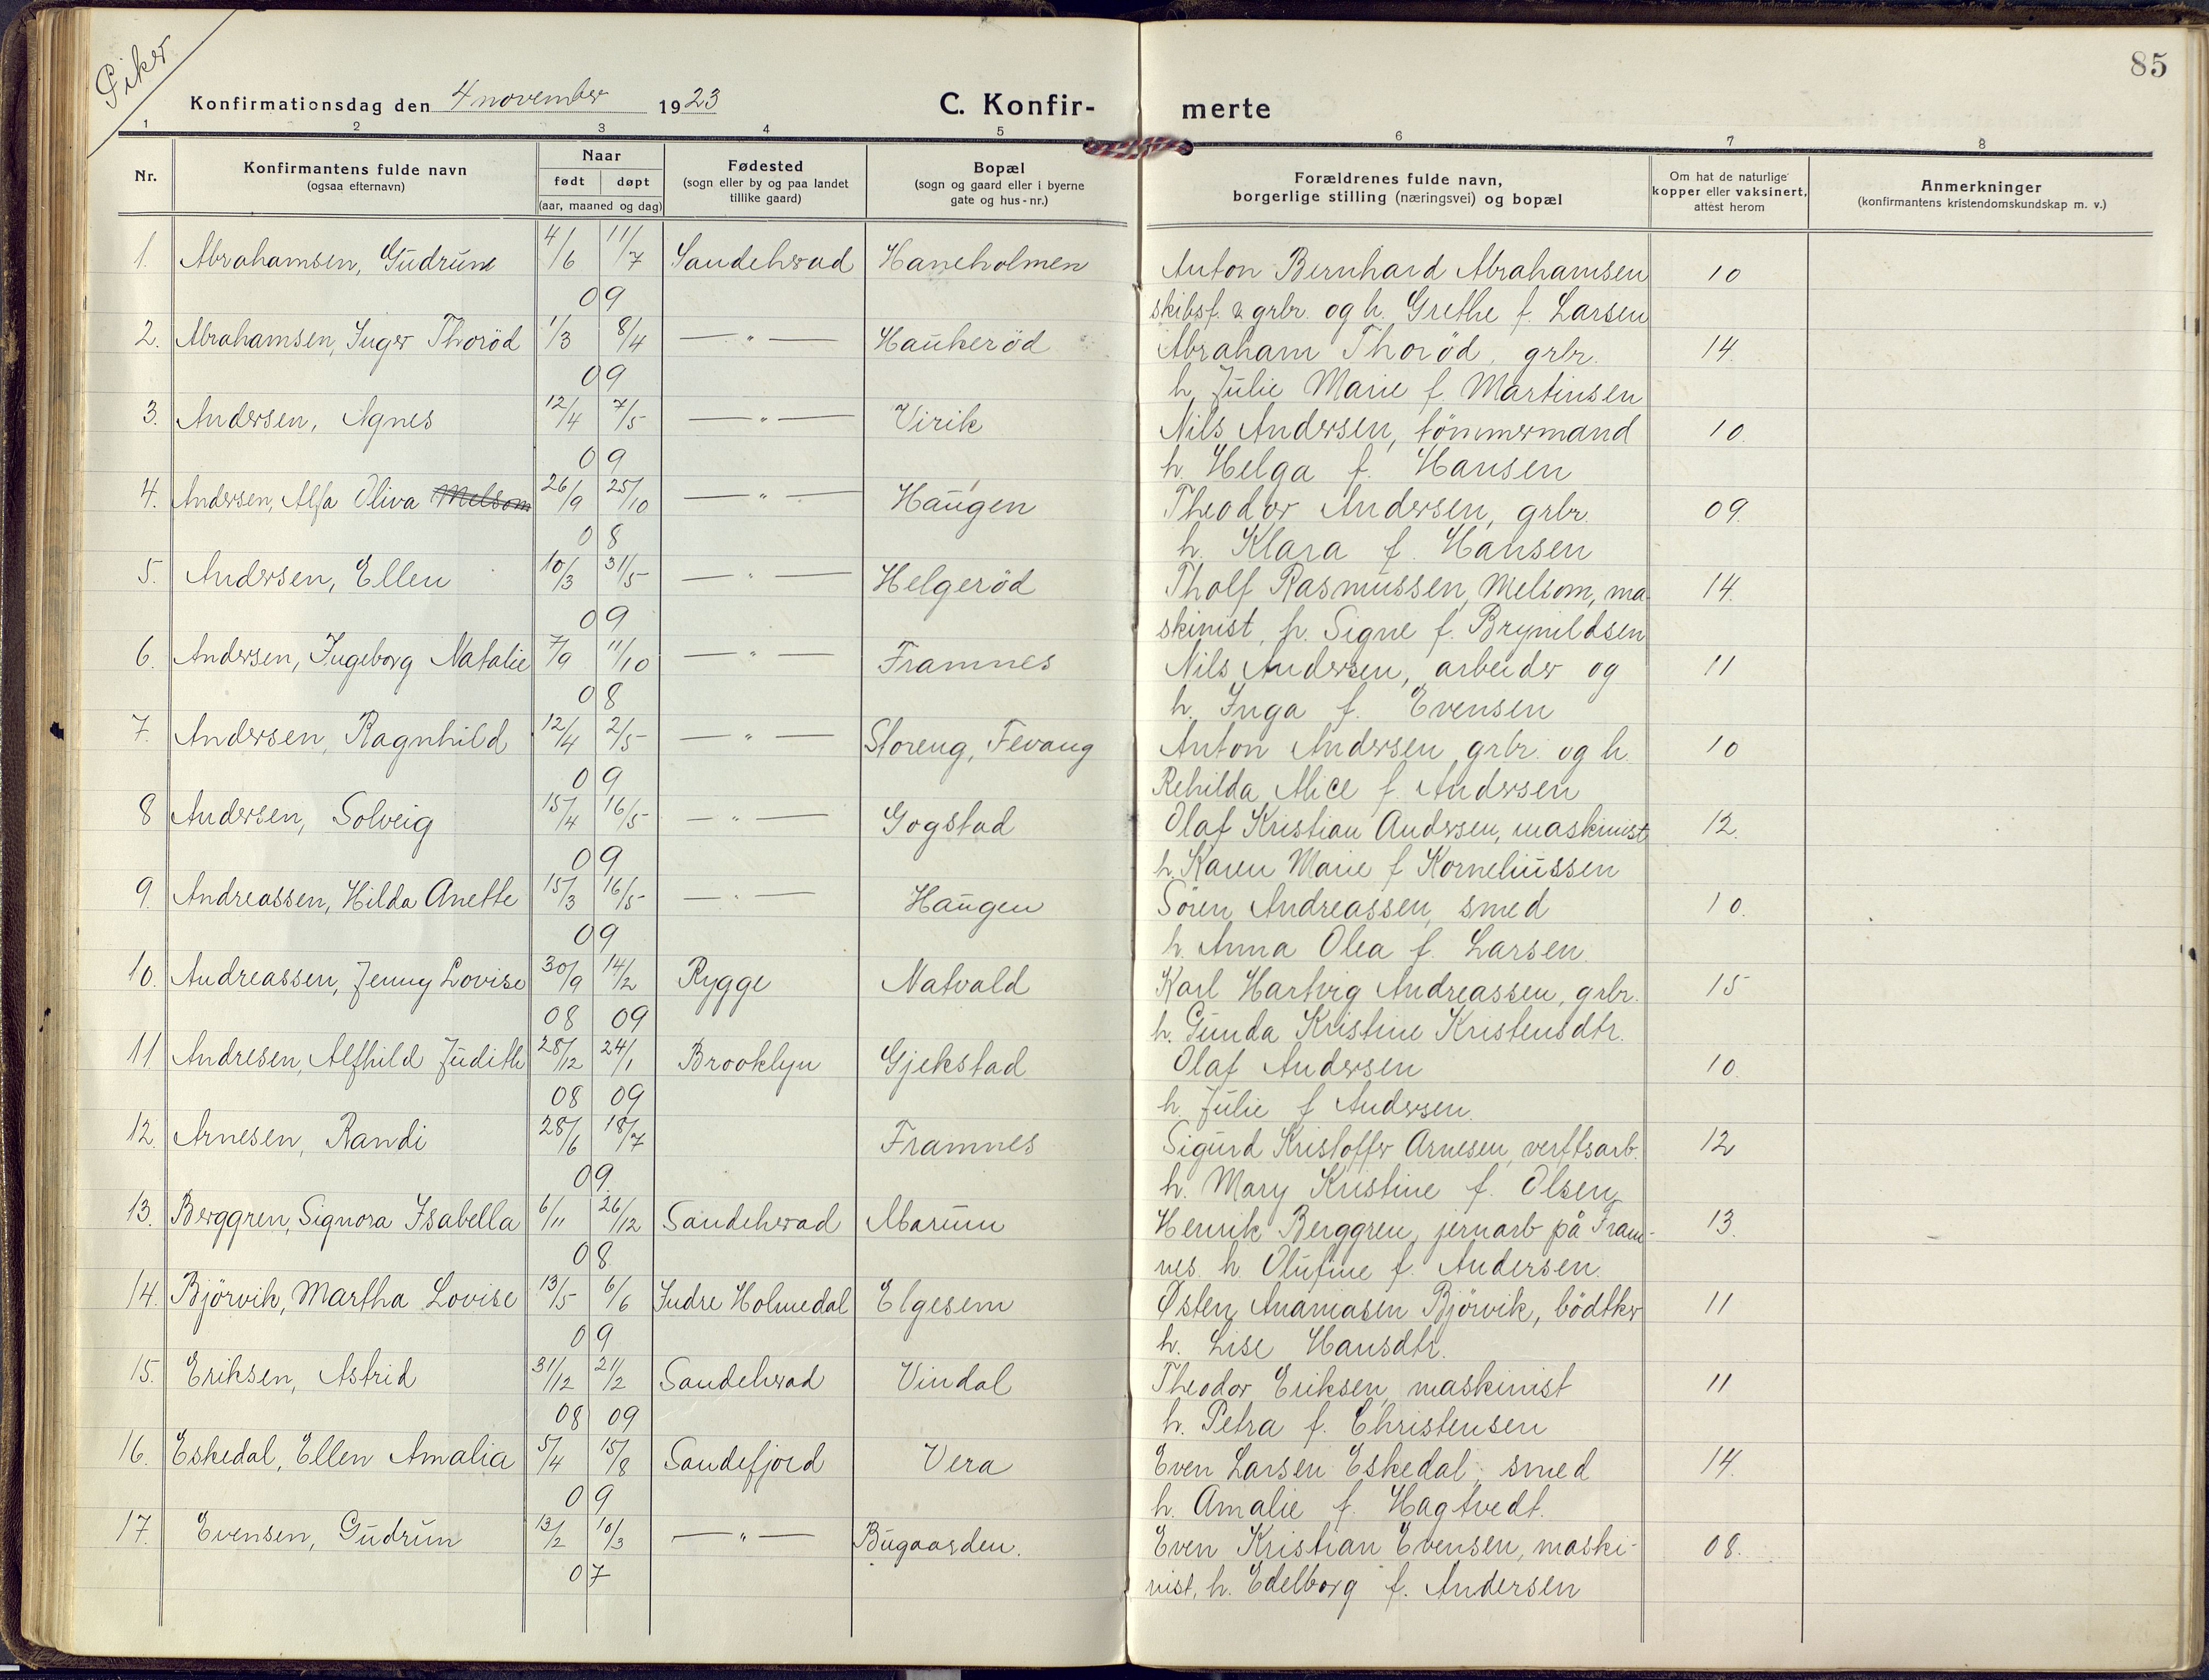 Piker
85
Konfirmationsdag den 4 november 1923
C. Konfir-merte
1 2 3 4 5 6 7 8
Nr.
Konfirmantens fulde navn
(ogsaa efternavn)
Naar
født døpt
(aar, maaned og dag)
Fødested
(sogn eller by og paa landet
tillike gaard)
Bopæl
(sogn og gaard eller i byerne
gate og hus-nr.)
Forældrenes fulde navn,
borgerlige stilling (næringsvei) og bopæl
Om hat de naturlige
kopper eller vaksinert,
attest herom
Anmerkninger
(konfirmantens kristendomskundskap m. v.)
1. Abrahamsen, Gudrun 4/6 11/7 Sandeherad Haneholmen Anton Bernhard Abrahamsen 10
09 skibsf. & grbr. og h. Grethe f. Larsen
2. Abrahamsen, Inger Thorød 1/3 8/4 — " — Haukerød Abraham Thorød, grbr. 14
09 h. Julie Marie f. Martinsen
3. Andersen, Agnes 12/4 7/5 — " — Virik Nils Andersen, tömmermand 10
09 h. Helga f. Hansen
4. Andersen, Alfa Oliva Melsom 26/9 25/10 — " — Haugen Theodor Andersen, grbr. 09.
08 h. Klara f. Hansen
5. Andersen, Ellen 10/3 31/5 — " — Helgerød Tholf Rasmussen, Melsom, ma- 14.
09 skinist, h. Signe f. Brynildsen
6. Andersen, Ingeborg Natalie 7/9 11/10 — " — Framnes Nils Andersen, arbeider og 11
08 h. Inga f. Evensen
7. Andersen, Ragnhild 12/4 2/5 — " — Storeng, Fevang Anton Andersen grbr. og h. 10
09 Rehilda Alice f. Andersen
8 Andersen, Solveig 15/4 16/5 — " — Gogstad Olaf Kristian Andersen, maskinist 12.
09 h. Karen Marie f Korneliussen
9. Andreassen, Hilda Anette 15/3 16/5 — " — Haugen Sören Andreassen, smed 10.
09 h. Anna Olea f. Larsen.
10. Andreassen, Jenny Lovise 30/9 14/2 Rygge Natvald Karl Hartvig Andreassen, grbr. 15
08 09 h. Gunda Kristine Kristensdtr.
11 Andresen, Alfhild Judith 28/12 24/1 Brooklyn Gjekstad Olaf Andersen 10.
08 09 h. Julie f Andersen.
12. Arnesen, Randi 28/6 18/7 Framnes Sigurd Kristoffer Arnesen, verftsarb. 12
09. h. Mary Kristine f. Olsen
13. Berggren, Signora Isabella 6/11 26/12 Sandeherad Marum Henrik Berggren, jernarb på Fram- 13.
08. nes. h. Olufine f. Andersen.
14. Björvik, Martha Lovise 13/5 6/6 Indre Holmedal Elgesem Østen Ananiasen Björvik, bödtker 11
09 h. Lise Hansdtr.
15. Eriksen, Astrid 31/12 21/2 Sandeherad Vindal Theodor Eriksen, maskinist 11
08 09 h. Petra f. Christensen
16. Eskedal, Ellen Amalia 5/4 15/8 Sandefjord Vera Even Larsen Eskedal, smed 14.
09 h. Amalie f. Hagtvedt.
17. Evensen, Gudrun 13/2 10/3 — " — Bugaarden. Even Kristian Evensen, maski- 08.
07 nist, h. Edelborg f. Andersen